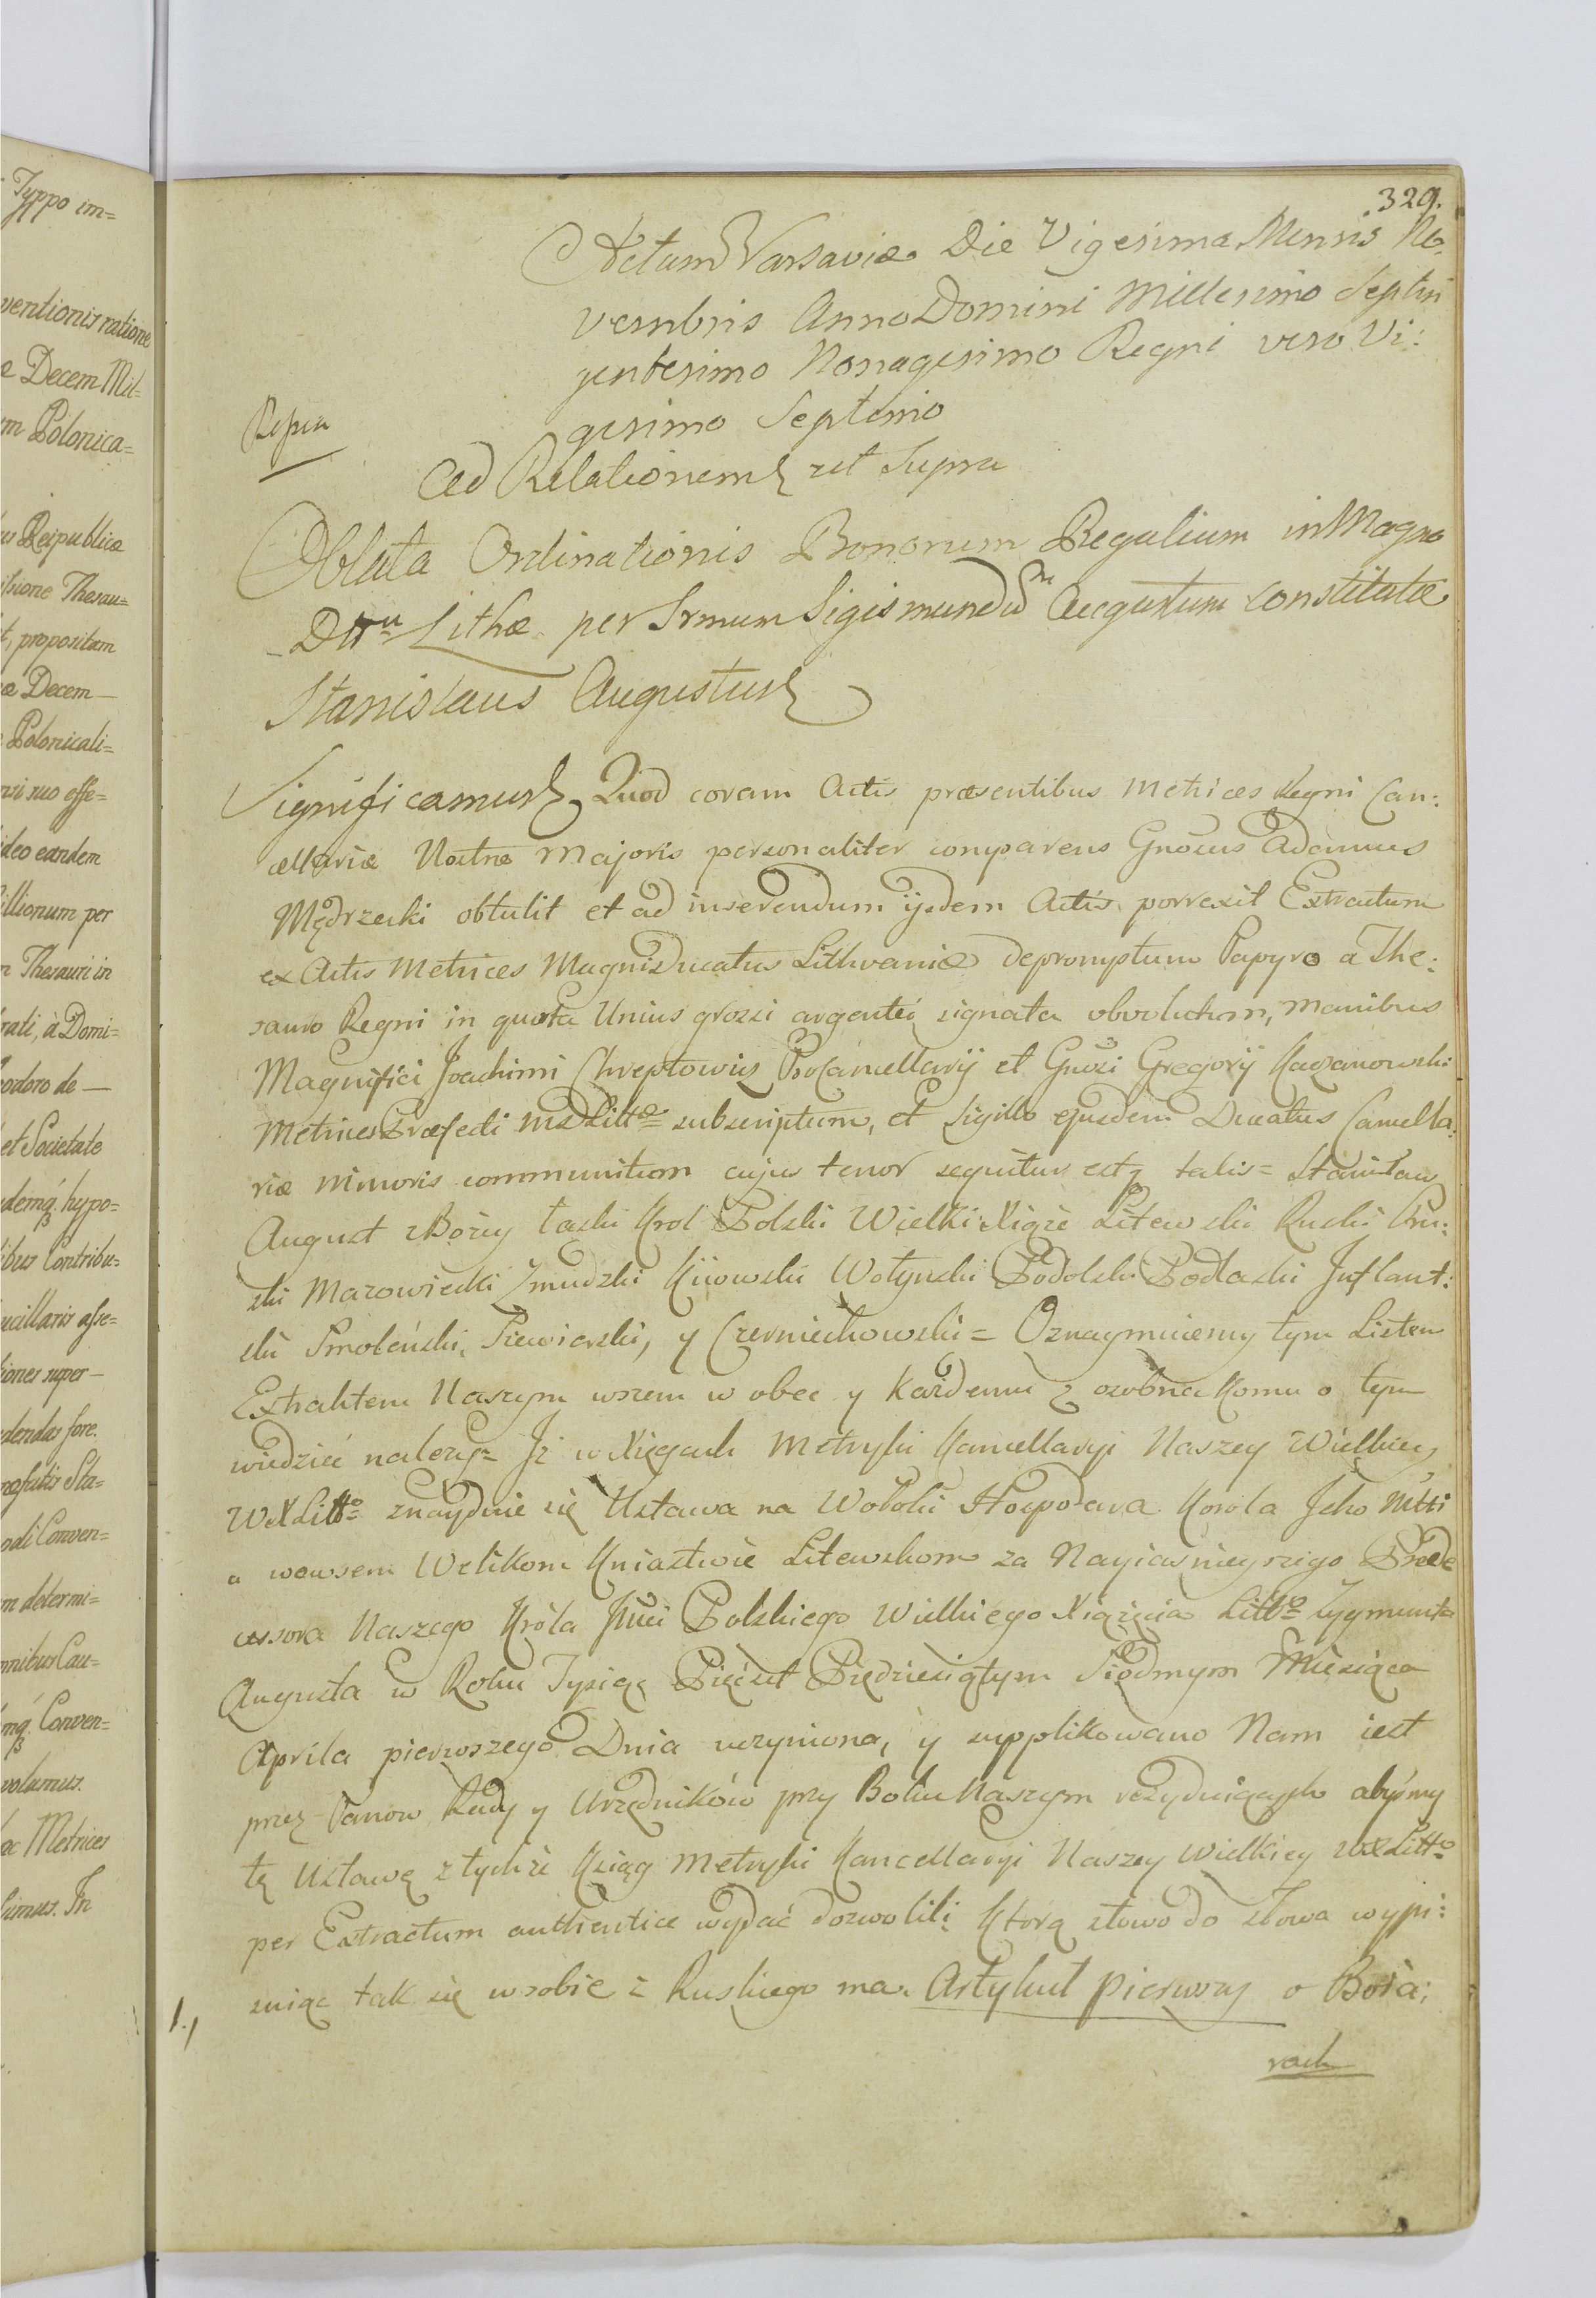 Typpo im=
ventionis ratione
e Decem Mil=
m Polonica=
us Reipublicæ
ssione Thesau=
t, propositam
æ Decem —
Polonicali=
nsi suo effe=
ideo eandem
illionum per
n Thesauri in
rali, à Domi=
eodoro de —
et Societate
demq; hypo=
ibus Contribu=
ucillaris asse=
iones super —
dendas fore.
ræfatis Sta=
odi Conven=
m determi=
nnibus Cau=
mq; Conven=
volumus.
ac Metrices
simus. In
329.
Actum Varsaviæ Die Vigesima Mensis No.
vembris Anno Domini Millesimo Septin
gentesimo Nonagesimo Regni vero Vi:
gesimo Septimo
Ad Relationem ut Supra
Oblata Ordinationis Bonorum Regalium in Magno
D̄ttu Lithæ per Srmum Sigismundūm Augustum constitutæ
Stanislaus Augustus
Significamus Quod coram Actis præsentibus Metrices Regni Can:
cellariæ Nostræ Majoris personaliter comparens Gnosus Adamus
Mędrzecki obtulit et ad inserendum ijsdem Actis porrexit Extractum
ex Actis Metrices Magni Ducatus Lithvaniæ depromptum Papyro a The:
sauro Regni in quota Unius grossi argentei signata obvolutum, manibus
Magnifici Joachimi Chreptowicz ProCancellarij et Gnosi Gregorij Kaczanowski
Metrices Præfecti MDLittæ subscriptum, et Sigillo ejusdem Ducatus Cancella:
riæ Minoris communitum cujus tenor sequitur estq talis = Stanisław
August z Bożey łaski Krol Polski Wielki Xiąże Litewski Ruski Pru:
ski Mazowiecki Zmudzki Kijowski Wołyński Podolski Podlaski Inflant:
ski Smoleński, Siewierski, y Czerniechowski = Oznaymuiemy tym Listem
Extraktem Naszym wszem w obec y każdemu z osobna komu o tym
wiedzieć należy = Jż w Xięgach Metryki Kancellaryi Naszey Wielkiey
WXLitto znayduie się Ustawa na Wołoki Hospodara Korola Jeho Mśti
u wowsem Welikom Kniaztwie Litewskom za Nayiaśnieyszego Præde
cessora Naszego Króla Jmci Polskiego Wielkiego Xiążęcia Litto Zygmunta
Augusta w Roku Tysiąc Pięćset Pięćdziesiątym Siódmym Miesiąca
Aprila pierwszego Dnia uczyniona, y supplikowano Nam iest
przez Panow Rady y Urzędników przy Boku Naszym rezyduiących abyśmy
tę Ustawę z tychże Ksiąg Metryki Kancellaryi Naszey Wielkiey WXLitto
per Extractum authentice wydać dozwolili, którą słowo do słowa wypi:
suiąc tak się w sobie z Ruskiego ma. Artykuł pierwszy o Boia:
1.,
rach